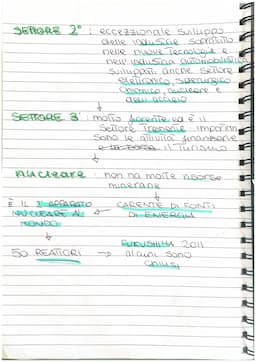 SETTORE 2°: eccezzionale sviluppo
delle industrie soprattutto
nelle nuove tecnologie e
nell'industria automobilistica
sviluppati anche settore
elettronico, siderurgico
chimico, nucleare e
dell'acciaio
SETTORE 3°: molto fiorente ed è il
settore trainante importanti
sono le attività finanziarie
il turismo
nucleare: non ha molte risorse
minerarie
È IL 3° APPARATO ← CARENTE DI FONTI
NUCLEARE AL DI ENERGIA
MONDO
FUKUSHIMA 2011
50 REATTORI → alcuni sono
chiusi